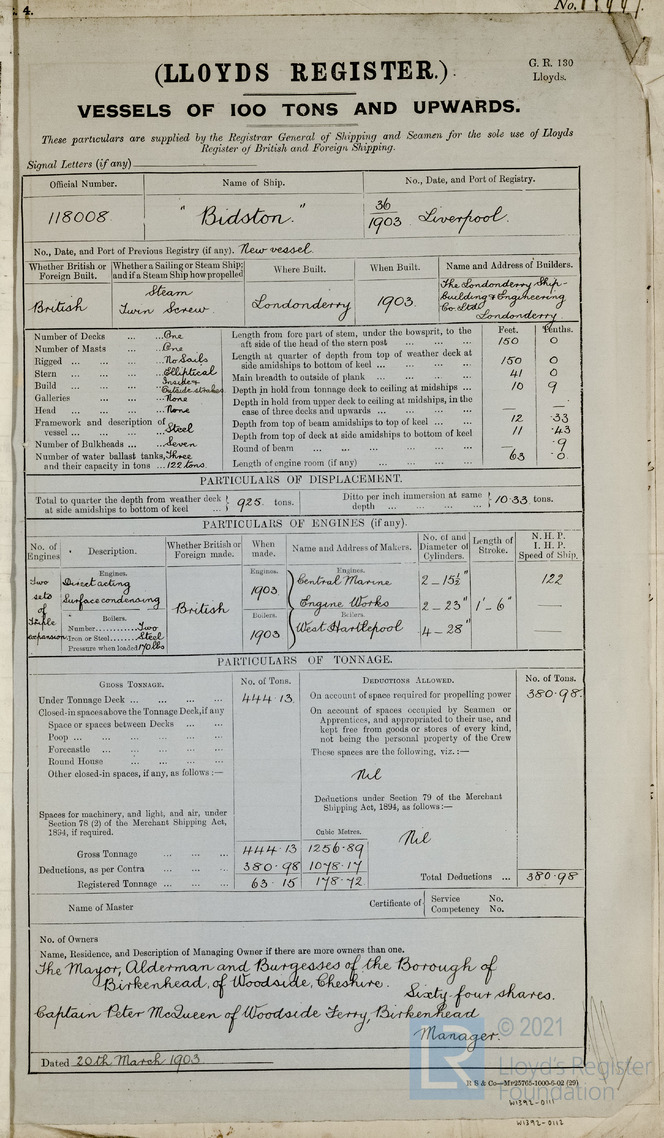 4.
No.
(LLOYDS REGISTER.)
G. R. 130
Lloyds.
VESSELS OF 100 TONS AND UPWARDS.
These particulars are supplied by the Registrar General of Shipping and Seamen for the sole use of Lloyds
Register of British and Foreign Shipping.
Signal Letters (if any)
Official Number. Name of Ship. No., Date, and Port of Registry.
118008 "Bidston." 36/1903 Liverpool.
No., Date, and Port of Previous Registry (if any). New vessel.
Whether British or Foreign Built. Whether a Sailing or Steam Ship; and if a Steam Ship how propelled Where Built. When Built. Name and Address of Builders.
British Steam Twin Screw Londonderry 1903. The Londonderry Ship-
building & Engineering
Co Ltd
Londonderry.
Feet. Tenths.
Number of Decks ... ... One
Number of Masts ... ... One
Rigged ... ... ... No Sails
Stern ... ... ... Elliptical
Build ... ... ... Inside & Outside strakes
Galleries ... ... ... None
Head ... ... ... None
Framework and description of vessel ... ... ... Steel
Number of Bulkheads ... Seven
Number of water ballast tanks, Three
and their capacity in tons ... 122 tons.
Length from fore part of stem, under the bowsprit, to the
aft side of the head of the stern post ... ... ... 150 0
Length at quarter of depth from top of weather deck at
side amidships to bottom of keel ... ... ... 150 0
Main breadth to outside of plank ... ... ... 41 0
Depth in hold from tonnage deck to ceiling at midships ... 10 9
Depth in hold from upper deck to ceiling at midships, in the
case of three decks and upwards ... ... ... — —
Depth from top of beam amidships to top of keel ... ... 12 .33
Depth from top of deck at side amidships to bottom of keel 11 .43
Round of beam ... ... ... ... .9
Length of engine room (if any) ... ... ... 63 .0
PARTICULARS OF DISPLACEMENT.
Total to quarter the depth from weather deck at side amidships to bottom of keel ... 925. tons. Ditto per inch immersion at same depth ... ... ... 10.33 tons.
PARTICULARS OF ENGINES (if any).
No. of Engines. Description. Whether British or Foreign made. When made. Name and Address of Makers. No. of and Diameter of Cylinders. Length of Stroke. N. H. P. I. H. P. Speed of Ship.
Two sets of triple expansion
Engines.
Direct acting
Surface condensing
Boilers.
Number........... Two
Iron or Steel....... Steel
Pressure when loaded 170 lbs
British
Engines.
1903
Boilers.
1903
Engines.
Central Marine
Engine Works
Boilers.
West Hartlepool
2 – 15½"
2 – 23"
4 – 28"
1' – 6"
122
—
PARTICULARS OF TONNAGE.
GROSS TONNAGE. No. of Tons. DEDUCTIONS ALLOWED. No. of Tons.
Under Tonnage Deck ... ... ... 444.13
Closed-in spaces above the Tonnage Deck, if any
Space or spaces between Decks ... ...
Poop ... ... ... ...
Forecastle ... ... ... ...
Round House ... ... ...
Other closed-in spaces, if any, as follows :—
Spaces for machinery, and light, and air, under
Section 78 (2) of the Merchant Shipping Act,
1894, if required.
Cubic Metres.
Gross Tonnage ... ... ... 444.13 1256.89
Deductions, as per Contra ... ... 380.98 1078.17
Registered Tonnage ... ... ... 63.15 178.72
On account of space required for propelling power 380.98.
On account of spaces occupied by Seamen or
Apprentices, and appropriated to their use, and
kept free from goods or stores of every kind,
not being the personal property of the Crew
These spaces are the following, viz. :—
Nil
Deductions under Section 79 of the Merchant
Shipping Act, 1894, as follows :—
Nil
Total Deductions ... 380.98
Name of Master Certificate of Service No.
Competency No.
No. of Owners
Name, Residence, and Description of Managing Owner if there are more owners than one.
The Mayor, Alderman and Burgesses of the Borough of
Birkenhead, of Woodside, Cheshire.
Sixty four shares.
Captain Peter McQueen of Woodside Ferry, Birkenhead
Manager.
Dated 20th March 1903
R S & Co—Mr25765-1000-6-02 (29)
LR
© 2021
Lloyd's Register
Foundation
W1392-0111
W1392-0112